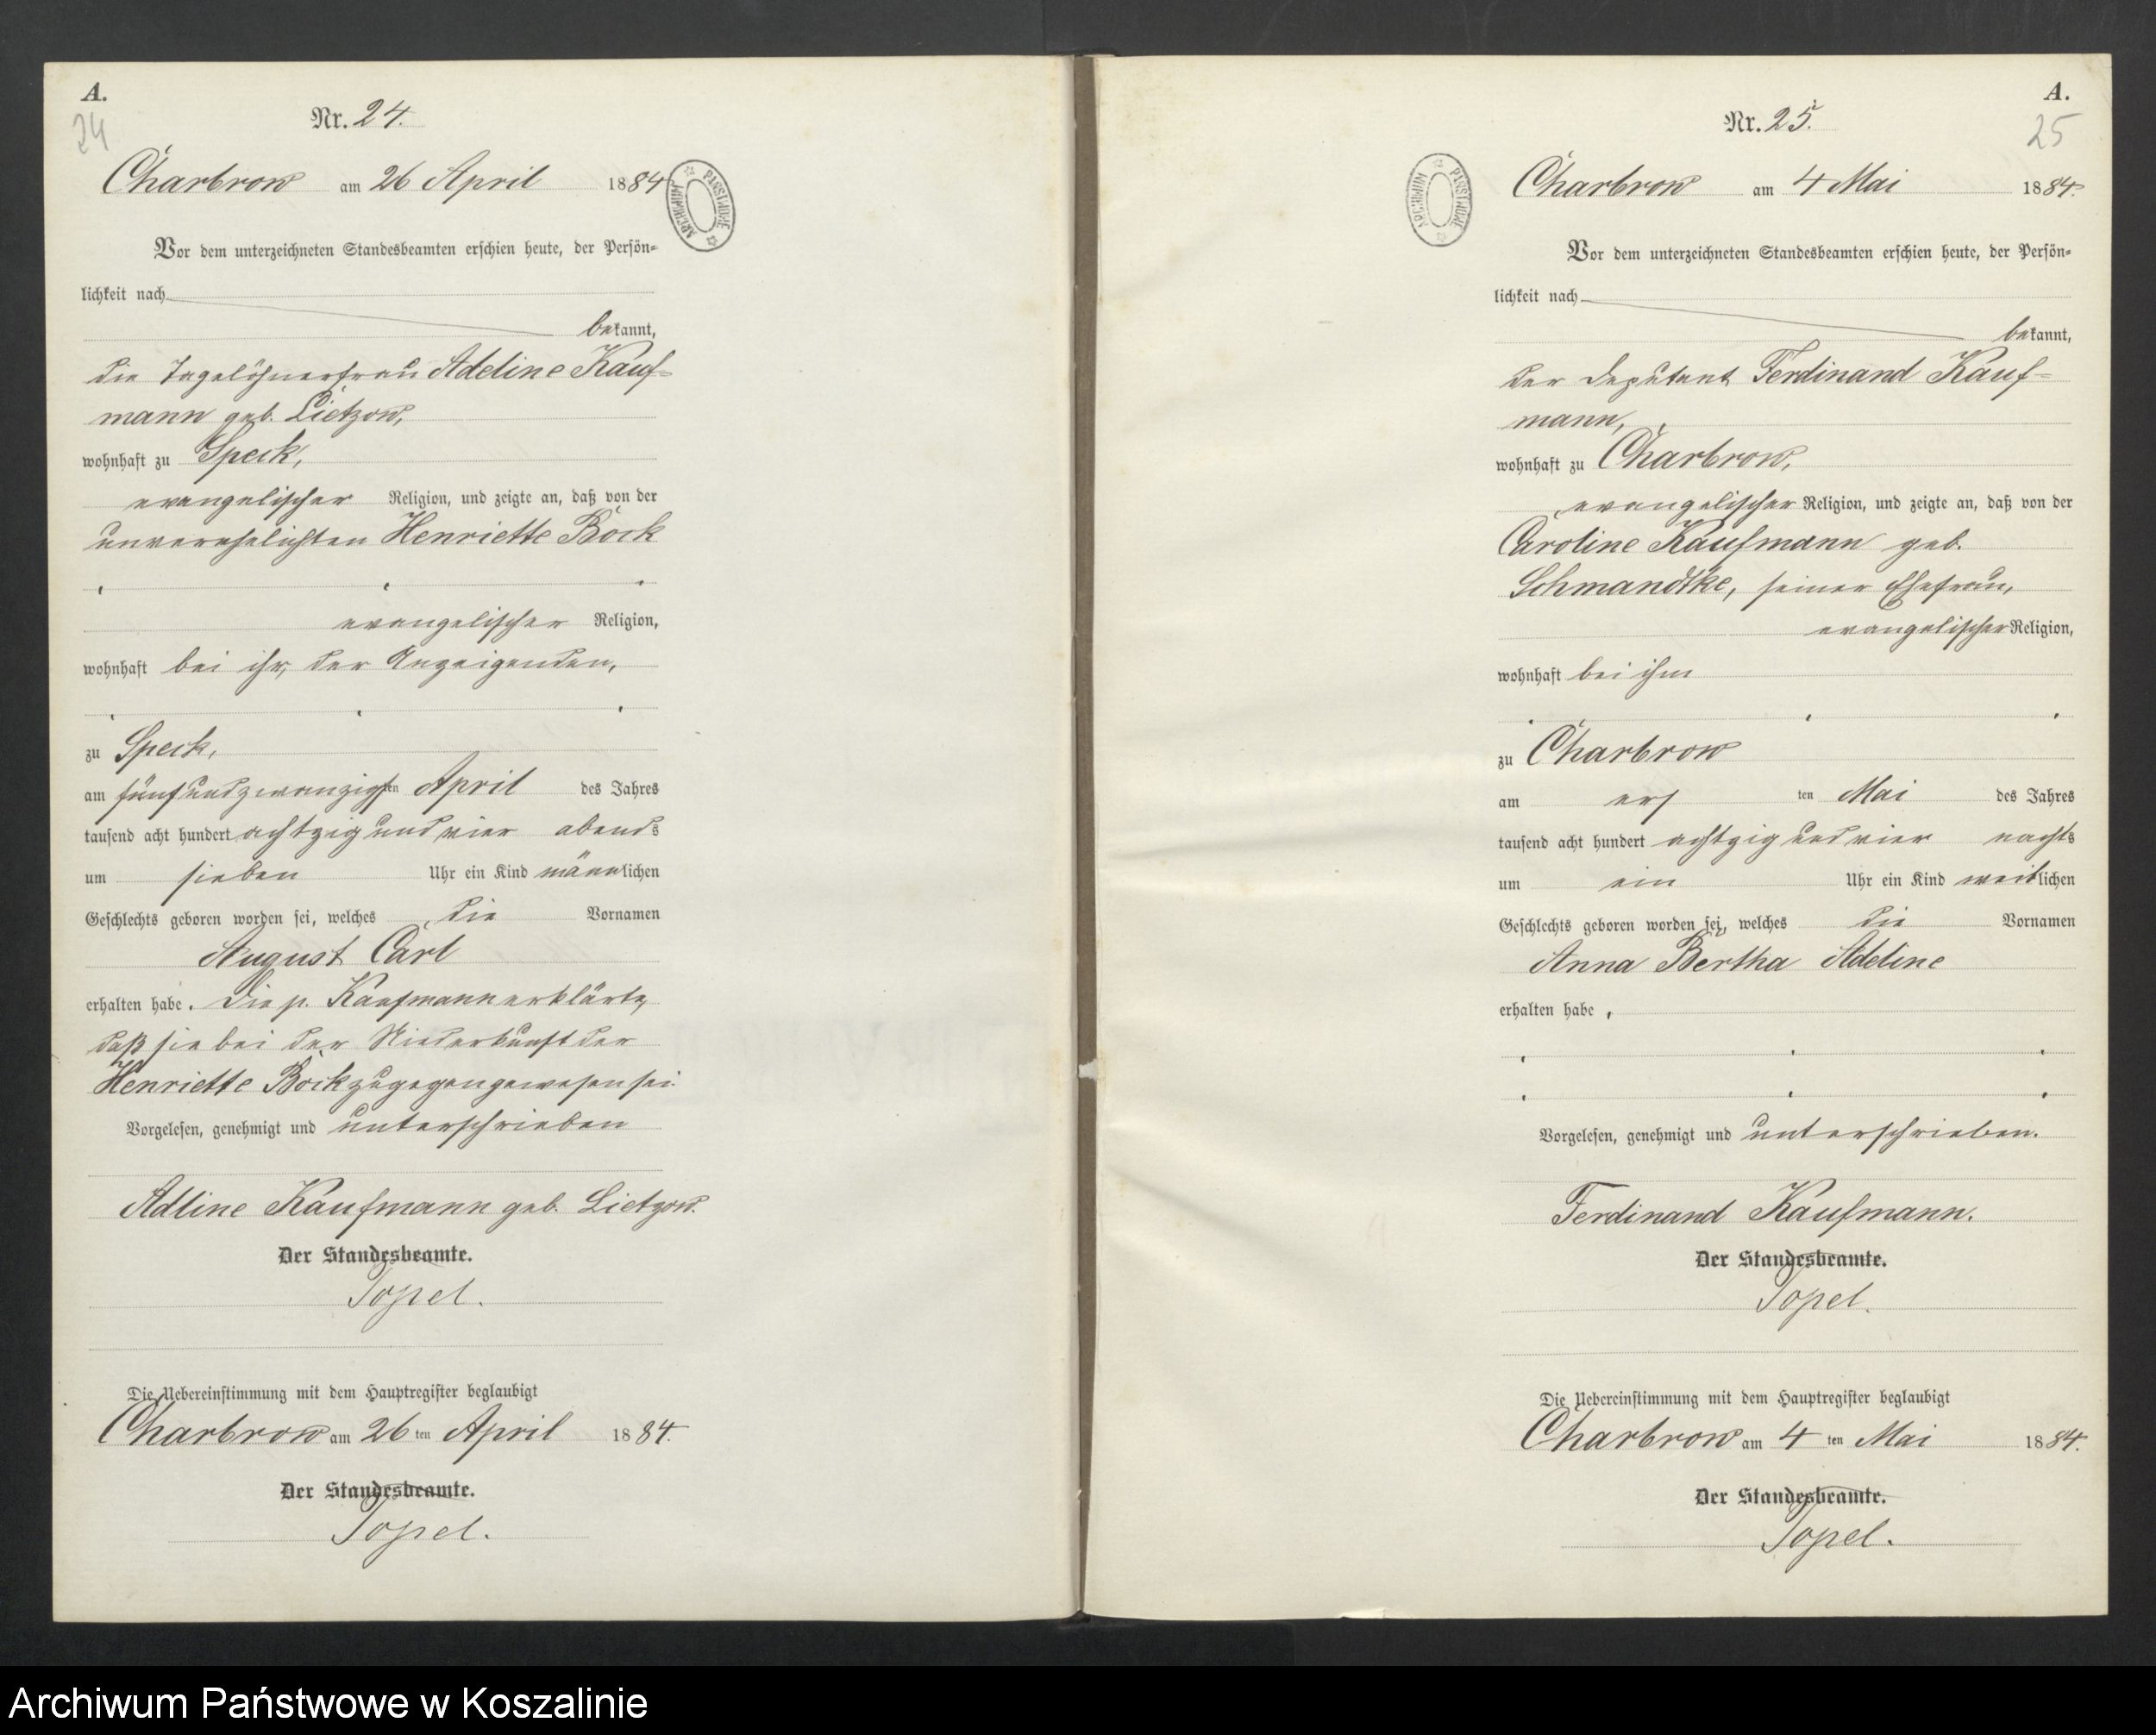 A.
24
Nr. 24.
Charbrow am 26 April 1884
ARCHIWUM PAŃSTWOWE
Vor dem unterzeichneten Standesbeamten erschien heute, der Persön=
lichkeit nach
bekannt,
die Tagelöhnerfrau Adeline Kauf=
mann geb. Lietzow,
wohnhaft zu Speck,
evangelischer Religion, und zeigte an, daß von der
unverehelichten Henriette Böck
evangelischer Religion,
wohnhaft bei ihr, der Anzeigenden,
zu Speck,
am fünfundzwanzigsten April des Jahres
tausend acht hundert achtzig und vier abends
um sieben Uhr ein Kind männlichen
Geschlechts geboren worden sei, welches die Vornamen
August Carl
erhalten habe. Die p. Kaufmann erklärte,
daß sie bei der Niederkunft der
Henriette Böck zugegen gewesen sei.
Vorgelesen, genehmigt und unterschrieben
Adline Kaufmann geb. Lietzow.
Der Standesbeamte.
Topel.
Die Uebereinstimmung mit dem Hauptregister beglaubigt
Charbrow am 26 ten April 1884.
Der Standesbeamte.
Topel.
A.
25
Nr. 25.
Charbrow am 4 Mai 1884.
ARCHIWUM PAŃSTWOWE
Vor dem unterzeichneten Standesbeamten erschien heute, der Persön=
lichkeit nach
bekannt,
der Deputant Ferdinand Kauf=
mann,
wohnhaft zu Charbrow,
evangelischer Religion, und zeigte an, daß von der
Caroline Kaufmann geb.
Schmandtke, seiner Ehefrau,
evangelischer Religion,
wohnhaft bei ihm
zu Charbrow
am ersten Mai des Jahres
tausend acht hundert achtzig und vier nachts
um ein Uhr ein Kind weiblichen
Geschlechts geboren worden sei, welches die Vornamen
Anna Bertha Adeline
erhalten habe.
Vorgelesen, genehmigt und unterschrieben.
Ferdinand Kaufmann.
Der Standesbeamte.
Topel.
Die Uebereinstimmung mit dem Hauptregister beglaubigt
Charbrow am 4 ten Mai 1884.
Der Standesbeamte.
Topel.
Archiwum Państwowe w Koszalinie